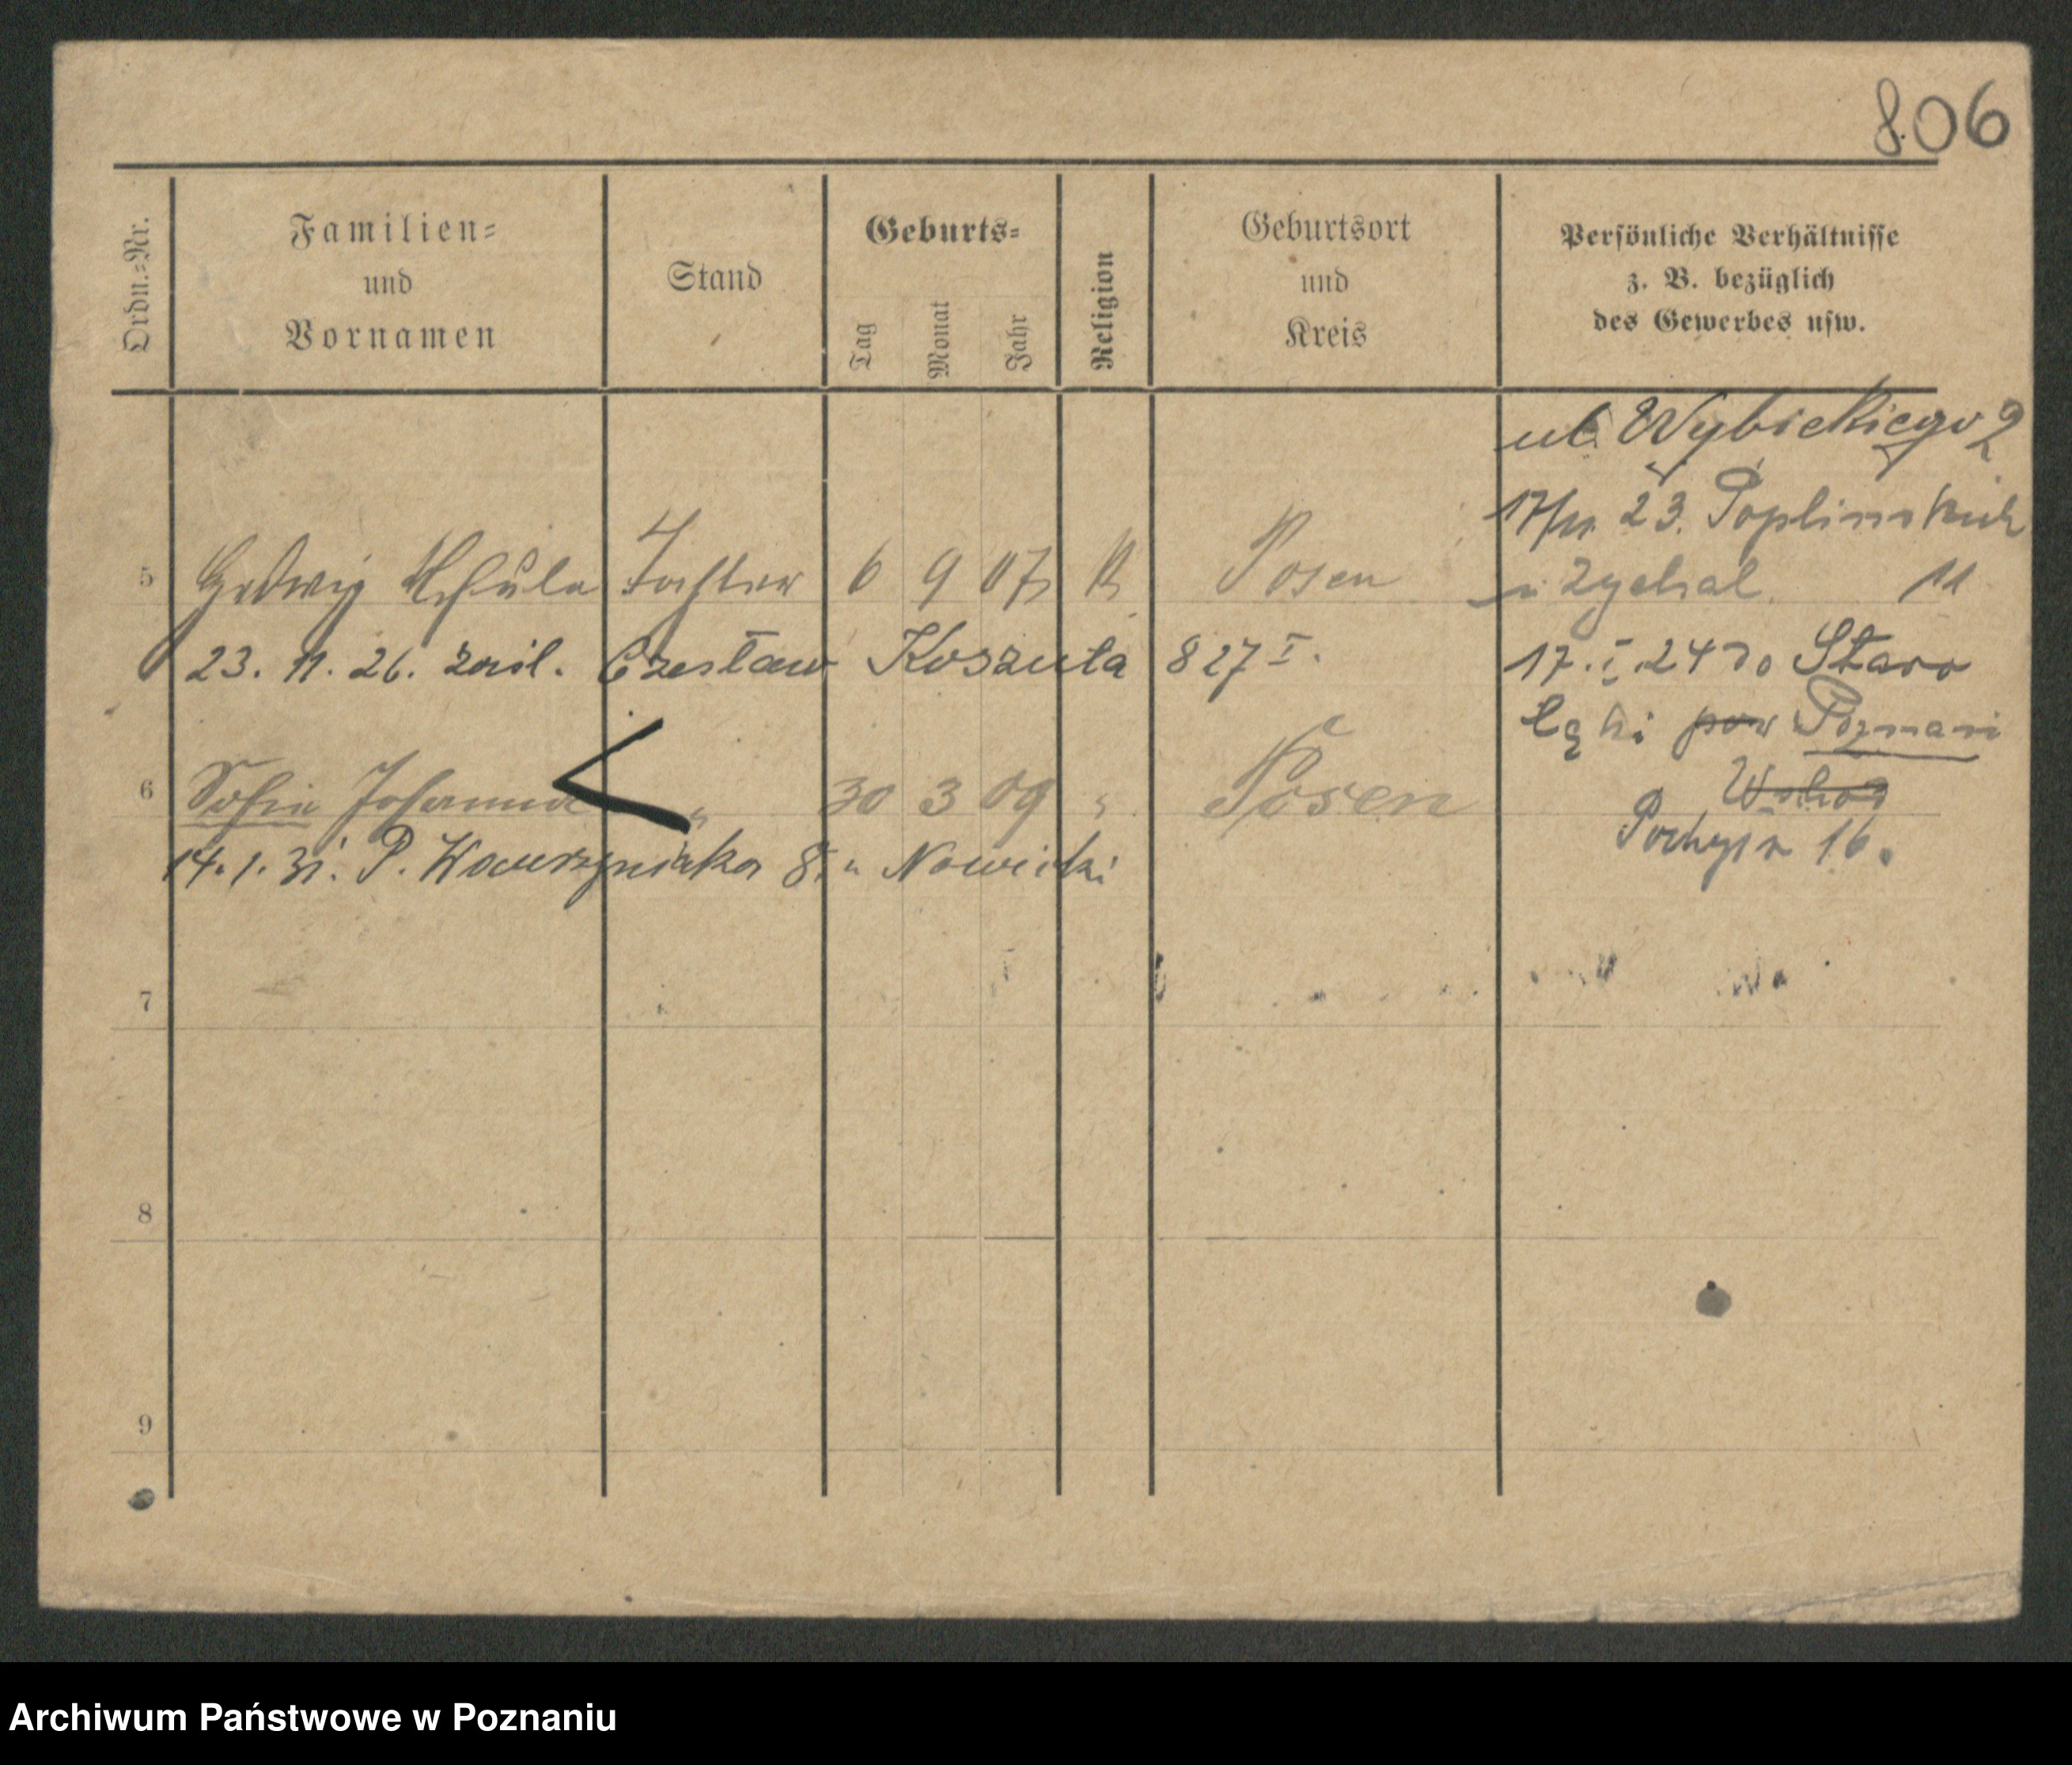 806
Ordn.=Nr.
Familien=
und
Vornamen
Stand
Geburts=
Tag
Monat
Jahr
Religion
Geburtsort
und
Kreis
Persönliche Verhältnisse
z. B. bezüglich
des Gewerbes usw.
ul. Wybickiego 2
17/11 23. Poplinskich
5 Hedwig Ursula Tochter 6 9 07 K Posen 11
23. 11. 26. Czesław Koszuta 827 I.
17. I. 24 do Staro
łęki pow Poznani
6 Sofie Johanna " 30 3 09 " Posen
16.
14. 1. 31. P. Wawrzyniaka 8. " Nowicki
7
8
9
Archiwum Państwowe w Poznaniu